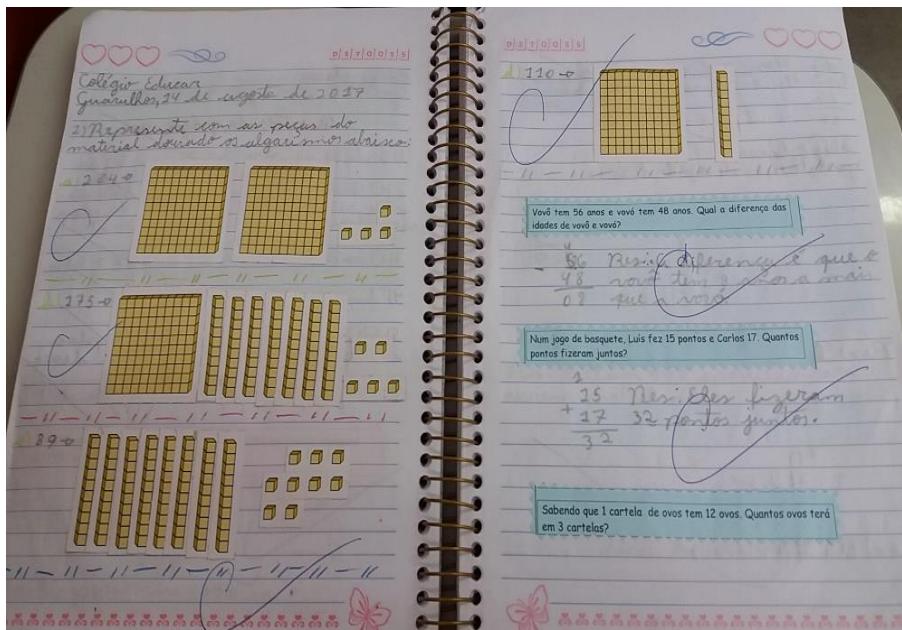 D S T Q Q S S
Colégio Educar
Guarulhos, 14 de agosto de 2017
1) Represente com as peças do
material dourado os algarismos abaixo:
a) 204→
b) 175→
c) 89→
D S T Q Q S S
d) 110→
Vovô tem 56 anos e vovó tem 48 anos. Qual a diferença das
idades de vovô e vovó?
56 Res: A diferença é que o
- 48 vovô tem 8 anos a mais
08 que a vovó
Num jogo de basquete, Luis fez 15 pontos e Carlos 17. Quantos
pontos fizeram juntos?
1
15 Res: Eles fizeram
+ 17 32 pontos juntos.
32
Sabendo que 1 cartela de ovos tem 12 ovos. Quantos ovos terá
em 3 cartelas?